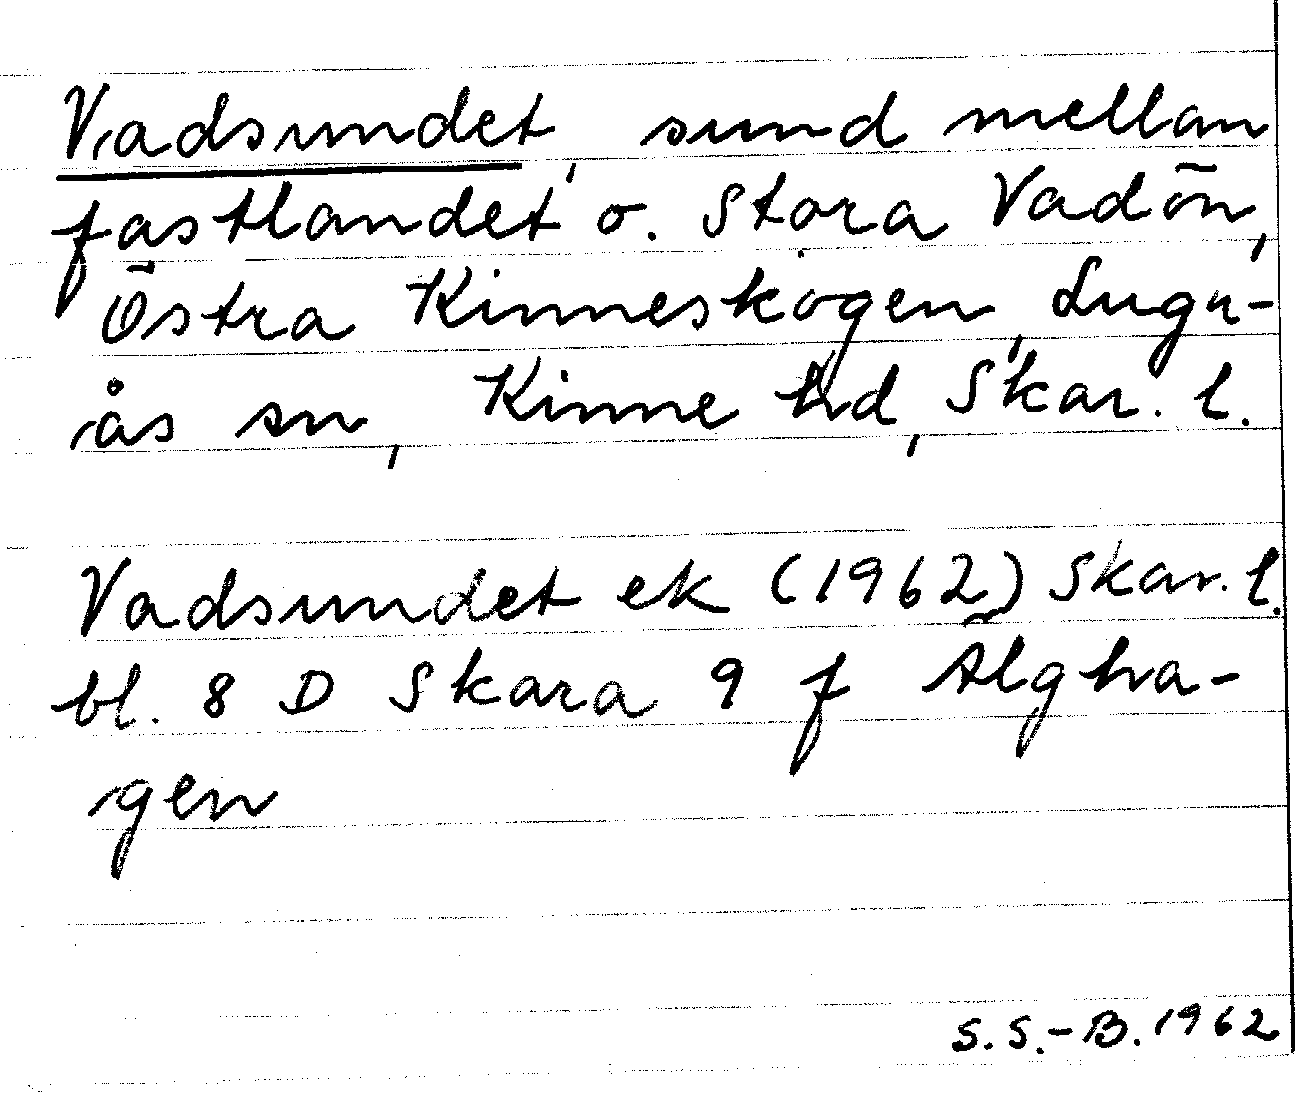 Vadsundet, sund mellan
fastlandet o. Stora Vadön,
Östra Kinneskogen, Lugn-
ås sn, Kinne hd, Skar. l.
Vadsundet ek (1962) Skar. l.
bl. 8 D Skara 9 f Älgha-
gen
S. S.-B. 1962